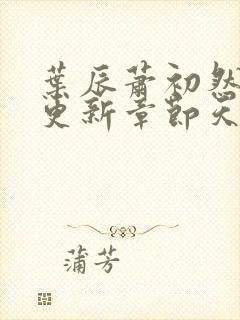 葉辰蕭初然
更新章節天
蒲芳